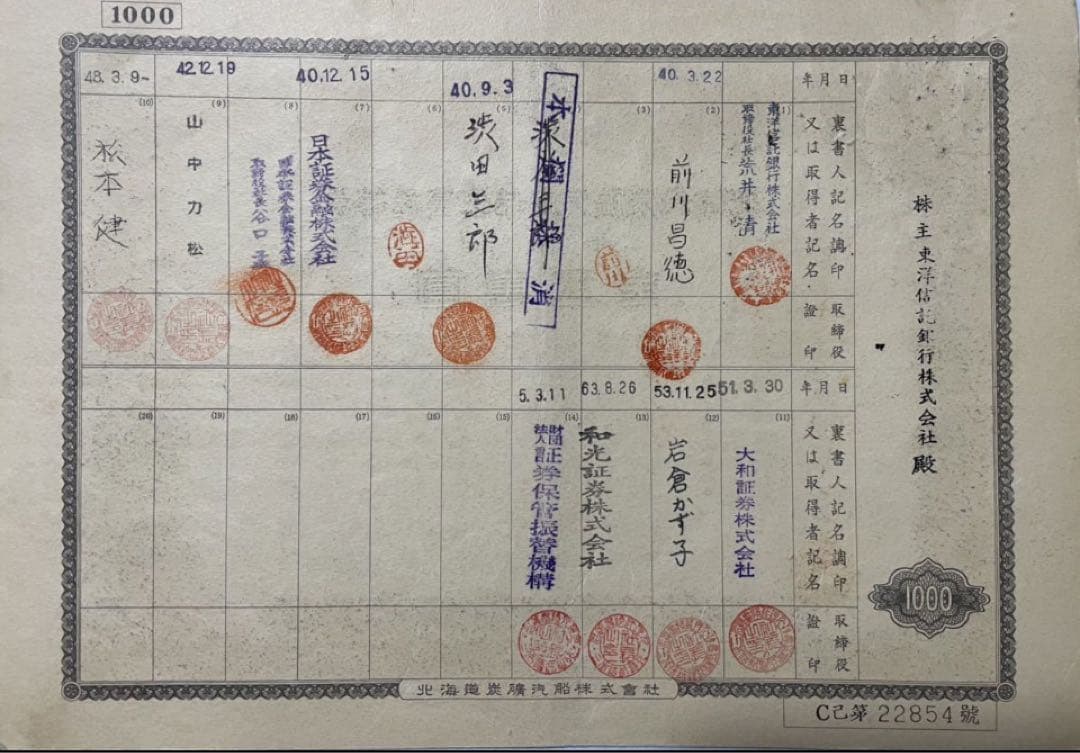 1000
株主 東洋信託銀行株式会社 殿
年月日
裏書人記名調印
又は取得者記名
取締役
證印
40.3.22
40.9.3
40.12.15
42.12.19
48.3.9~
(1)
東洋信託銀行株式会社
取締役社長 荒井 清
(2)
前川昌徳
(3)
(5)
(6)
(7)
日本証券金融株式会社
(8)
(9)
山中力松
(10)
松本健
年月日
裏書人記名調印
又は取得者記名
取締役
證印
51.3.30
53.11.25
63.8.26
5.3.11
(11)
大和証券株式会社
(12)
岩倉かず子
(13)
和光証券株式会社
(14)
財団法人 証券保管振替機構
(15)
(16)
(17)
(18)
(19)
(20)
1000
北海道炭礦汽船株式會社
C己第22854號